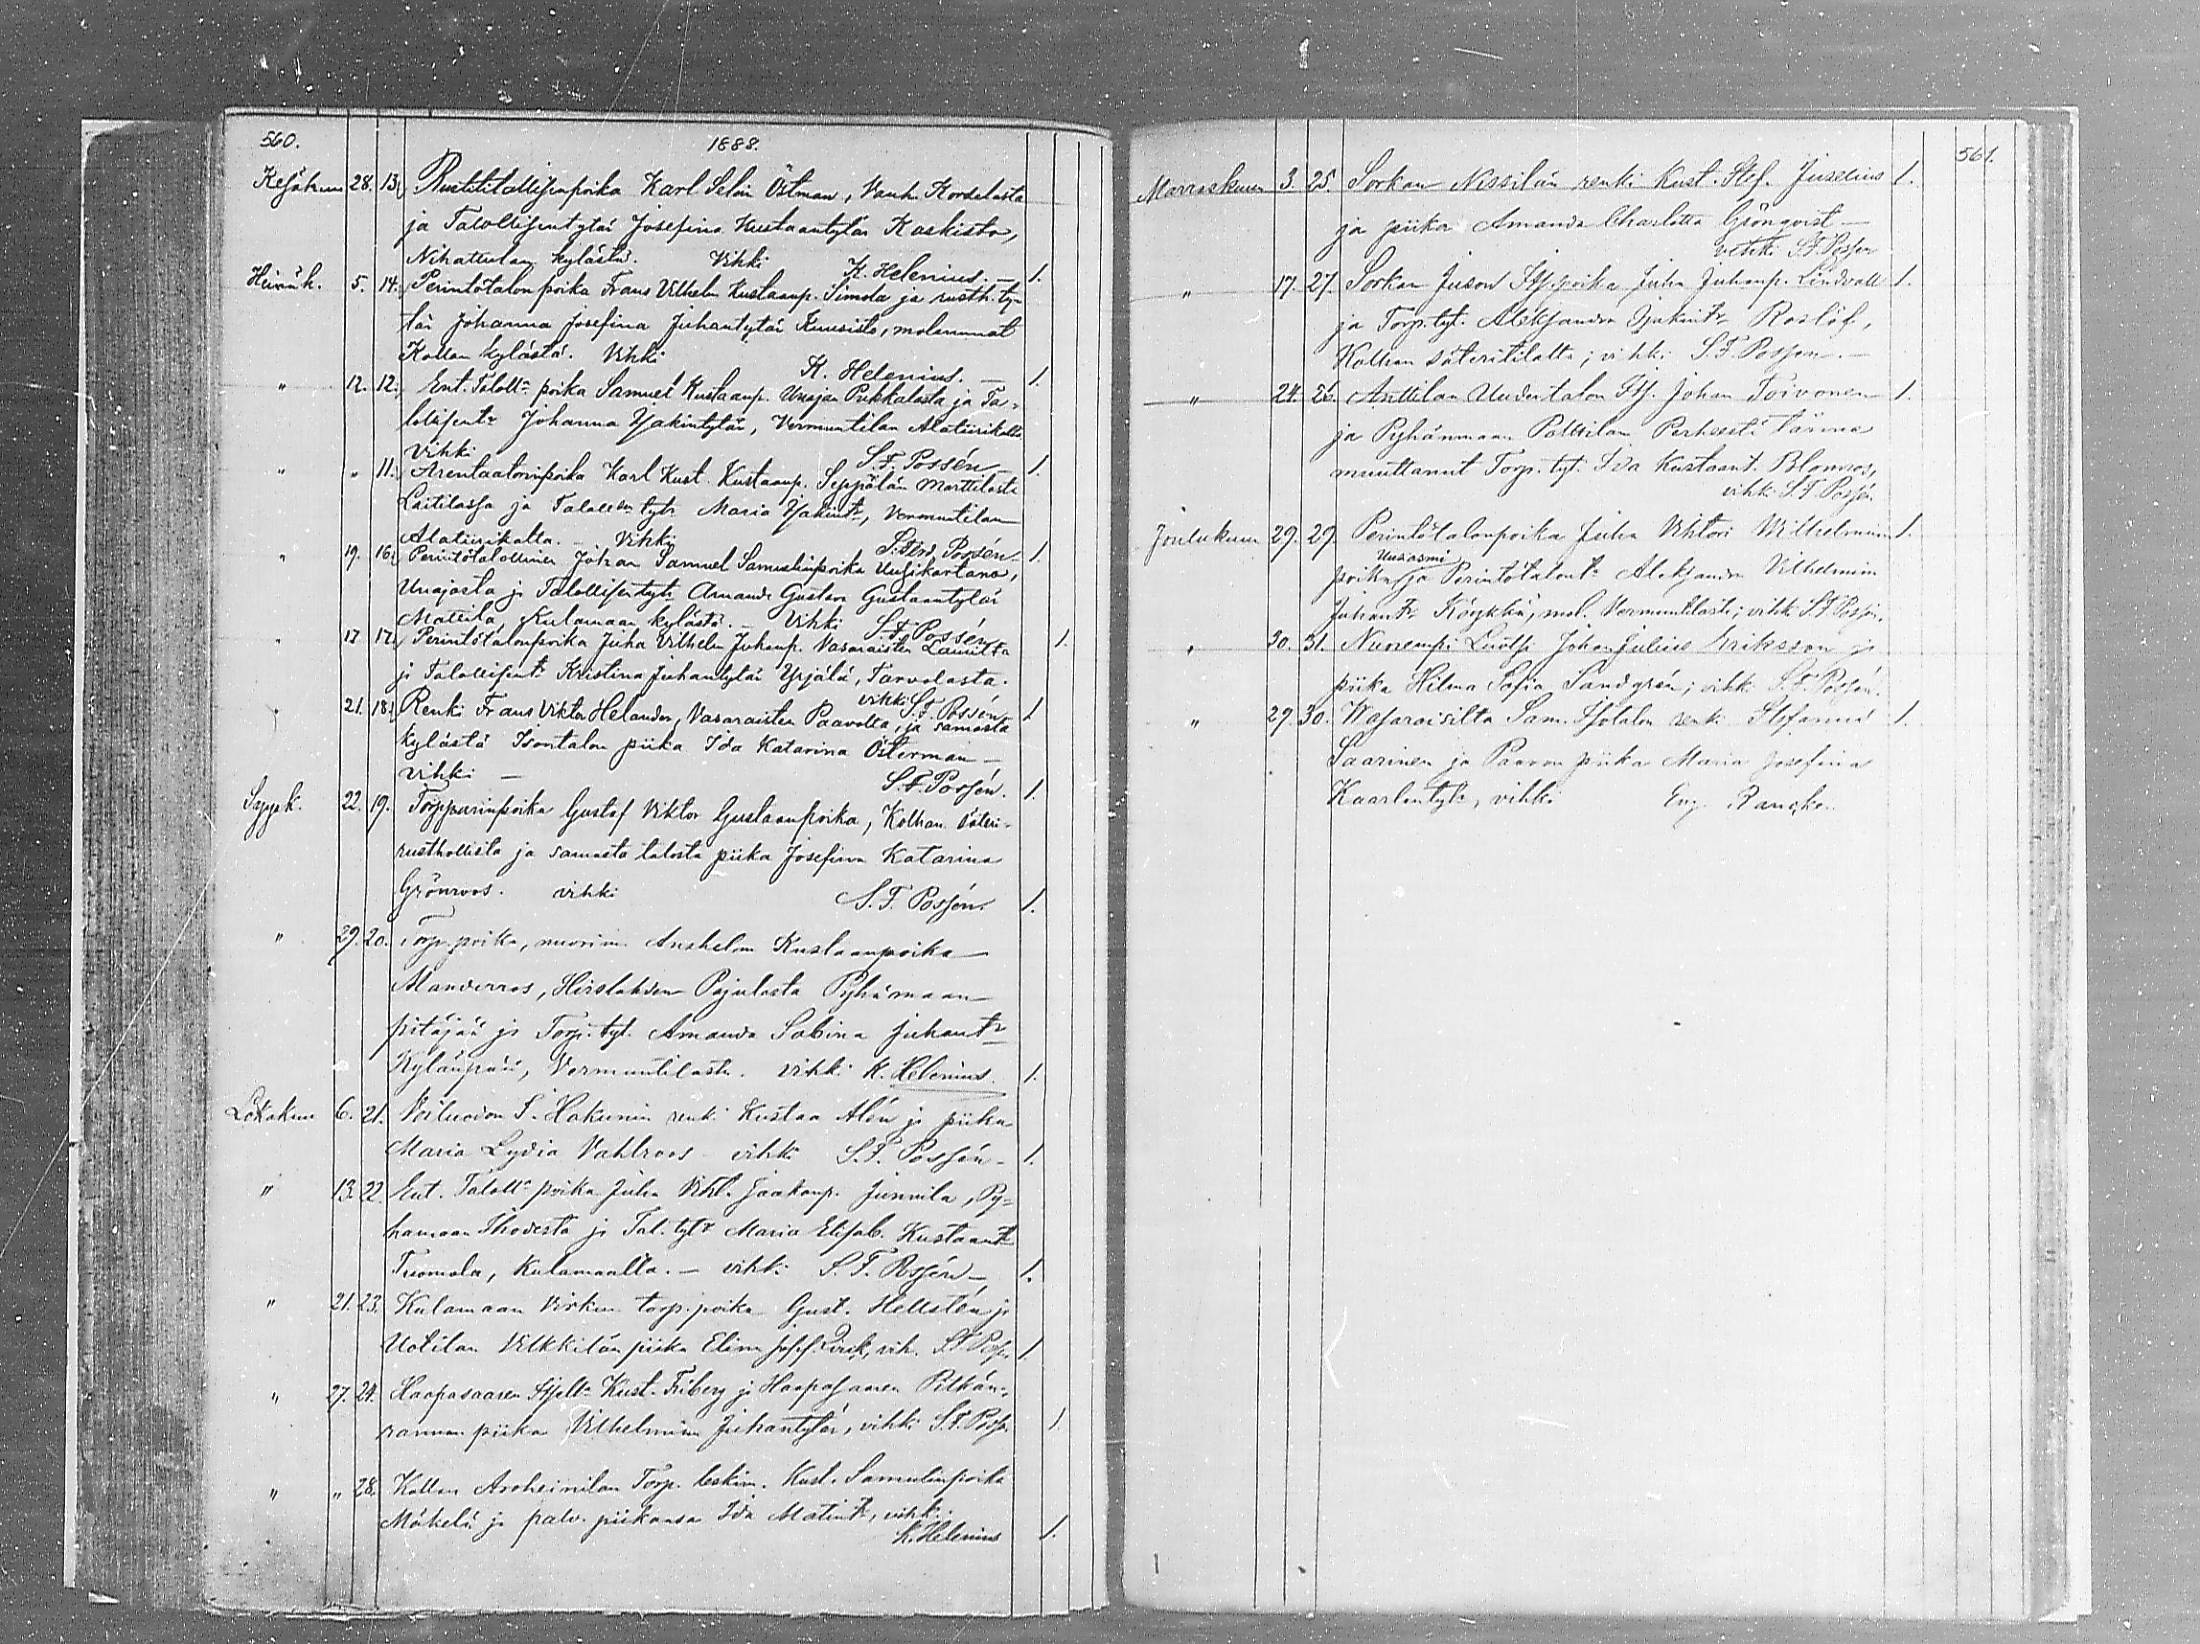 560.
1888.
Kesäkuu 28. 13. Rustitallisenpoika Karl Selin Östman, Vanh. Kordelasta
ja Talollisentytär Josefina Kustaantytär Kaskisto,
Nihattulan kylästä. Vihki K. Helenius. — 1.
Heinäk. 5. 14. Perintötalon poika Frans Vilhelm Kustaanp. Simola ja rusth. ty-
tär Johanna Josefina Juhantytär Kuusisto, molemmat
Kollan kylästä. Vihki K. Helenius. — 1.
" 12. 12. Ent. Taloll. poika Samuel Kustaanp. Unajan Pukkalasta ja Ta-
lollisentr Johanna Isakintytär, Vermuntilan Alatiirikalta
Vihki S. F. Possén — 1.
" " 11. Arentaatorinpoika Karl Kust. Kustaanp. Seppälän Marttilasta
Laitilassa ja Talollisen tytr Maria Isakintr, Vermuntilan
Alatiirikalta. — Vihki S. Ferd. Possén 1.
" 19. 16. Perintötalollinen Johan Samuel Samuelinpoika Uusikartano,
Unajasta ja Talollisentytr Amanda Gustava Gustaantytär
Mattila, Kulamaan kylästä. — Vihki S. F. Possén
" 17 17. Perintötalonpoika Juha Vilhelm Juhanp. Vasaraisten Laurilta 1.
ja Talollisentr Kristina Juhantytär Yrjälä, Tarvolasta.
vihki S. F. Possén
" 21. 18. Renki Frans Viktor Helander, Vasaraisten Paavolta, ja samasta 1
kylästä Isontalon piika Ida Katarina Österman —
vihki — S. F. Possén. 1.
Syysk. 22. 19. Torpparinpoika Gustaf Viktor Gustaanpoika, Kolhan Säteri-
rusthollista ja samasta talosta piika Josefina Katarina
Grönroos. vihki S. F. Possén. 1.
" 29. 20. Torp. poika, nuorim. Anshelm Kustaanpoika
Manderros, Hirslahden Pajulasta Pyhämaan
pitäjää ja Torp. tyt. Amanda Sabina Juhantr
Kylänpää, Vermuntilasta. vihki K. Helenius. 1.
Lokakuu 6. 21. Voiluodon I. Hakunin renki Kustaa Alén ja piika
Maria Lydia Vahlroos — vihki S. F. Possén — 1.
" 13. 22. Ent. Taloll. poika Juha Vihl. Jaakonp. Junnila, Py-
hämaan Ihodesta ja Tal. tytr Maria Elisab. Kustaantr
Tuomola, Kulamaalla. — vihki S. F. Possén — 1.
" 21. 23. Kulamaan Virkun torp. poika Gust. Hellstén ja
Uotilan Vilkkilän piika Elina Josef. Qvick, vih. S F Possén 1.
" 27. 24. Haapasaaren Itsell. Kust. Friberg ja Haapasaaren Pitkän-
rannan piika Vilhelmina Juhantytär, vihki S. F. Possén 1
" " 28. Kollan Aroheinilan Torp. leskim. Kust. Samulinpoika
Mäkelä ja palv. piikansa Ida Matintr, vihki:
K. Helenius 1.
561.
Marraskuu 3. 25. Sorkan Nissilän renki Kust. Stef. Juselius 1.
ja piika Amanda Charlotta Grönqvist —
vihki S. F. Possén
" 17. 27. Sorkan Juson Its. poika Juha Juhanp. Lindvall 1.
ja Torp. tyt. Aleksandra Isakintr Roslöf,
Kolhan säteritilalta; vihki S. F. Possén. —
" 24. 26. Anttilan Uudentalon Its. Johan Toivonen 1.
ja Pyhänmaan Pattilan Perheestä tänne
muuttanut Torp. tyt. Ida Kustaant. Blomros,
vihki S. F. Possén.
Joulukuu 29. 29. Perintötalonpoika Juha Viktori Wilhelmin 1.
Uusiasmi
poika ja Perintötalontr Aleksandra Vilhelmina
Juhantr Köykkä, mol. Vermuntilasta; vihki S F Possén.
" 30. 31. Nuorempi Luotsi Johan Julius Eriksson ja
piika Hilma Sofia Sandgrén; vihki S. F. Possén.
" 29. 30. Wasaraisilta Sam. Isotalon renki Stefanus 1.
Saarinen ja Paavon piika Maria Josefina
Kaarlentytr, vihki